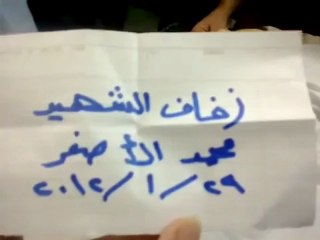 زفاف الشهيد
محمد الأصفر
٢٠١٢/١/٢٩